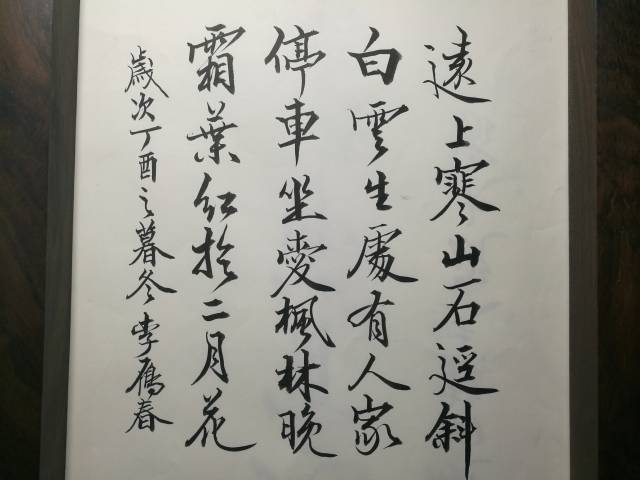 遠上寒山石逕斜
白雲生處有人家
停車坐愛楓林晚
霜葉紅於二月花
歲次丁酉之暮冬李雁春